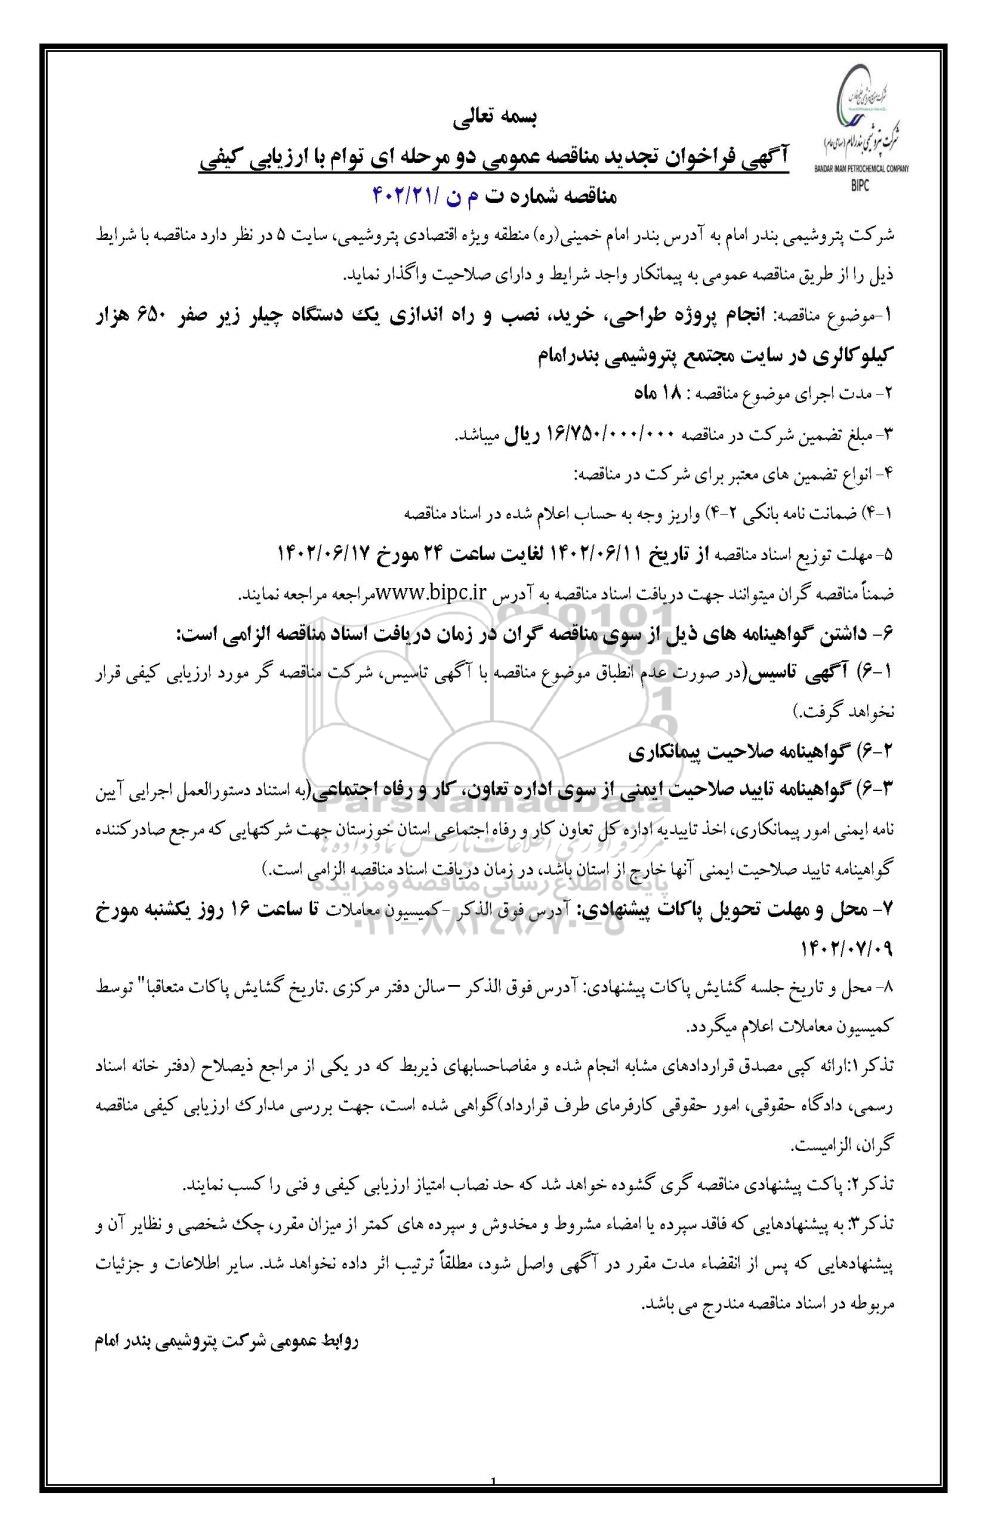 شرکت پتروشیمی بندر امام (سهامی عام)
BANDAR IMAM PETROCHEMICAL COMPANY
BIPC
بسمه تعالی
آگهی فراخوان تجدید مناقصه عمومی دو مرحله ای توام با ارزیابی کیفی
مناقصه شماره ت م ن /۴۰۲/۲۱
شرکت پتروشیمی بندر امام به آدرس بندر امام خمینی(ره) منطقه ویژه اقتصادی پتروشیمی، سایت ۵ در نظر دارد مناقصه با شرایط
ذیل را از طریق مناقصه عمومی به پیمانکار واجد شرایط و دارای صلاحیت واگذار نماید.
۱-موضوع مناقصه: انجام پروژه طراحی، خرید، نصب و راه اندازی یک دستگاه چیلر زیر صفر ۶۵۰ هزار
کیلوکالری در سایت مجتمع پتروشیمی بندرامام
۲- مدت اجرای موضوع مناقصه : ۱۸ ماه
۳- مبلغ تضمین شرکت در مناقصه ۱۶/۷۵۰/۰۰۰/۰۰۰ ریال میباشد.
۴- انواع تضمین های معتبر برای شرکت در مناقصه:
۴-۱) ضمانت نامه بانکی ۴-۲) واریز وجه به حساب اعلام شده در اسناد مناقصه
۵- مهلت توزیع اسناد مناقصه از تاریخ ۱۴۰۲/۰۶/۱۱ لغایت ساعت ۲۴ مورخ ۱۴۰۲/۰۶/۱۷
ضمناً مناقصه گران میتوانند جهت دریافت اسناد مناقصه به آدرس www.bipc.ir مراجعه مراجعه نمایند.
۶- داشتن گواهینامه های ذیل از سوی مناقصه گران در زمان دریافت اسناد مناقصه الزامی است:
۶-۱) آگهی تاسیس(در صورت عدم انطباق موضوع مناقصه با آگهی تاسیس، شرکت مناقصه گر مورد ارزیابی کیفی قرار
نخواهد گرفت.)
۶-۲) گواهینامه صلاحیت پیمانکاری
۶-۳) گواهینامه تایید صلاحیت ایمنی از سوی اداره تعاون، کار و رفاه اجتماعی(به استناد دستورالعمل اجرایی آیین
ParsNamadData
نامه ایمنی امور پیمانکاری، اخذ تاییدیه اداره کل تعاون کار و رفاه اجتماعی استان خوزستان جهت شرکتهایی که مرجع صادرکننده
گواهینامه تایید صلاحیت ایمنی آنها خارج از استان باشد، در زمان دریافت اسناد مناقصه الزامی است.)
پایگاه اطلاع رسانی مناقصه و مزایده
۷- محل و مهلت تحویل پاکات پیشنهادی: آدرس فوق الذکر -کمیسیون معاملات تا ساعت ۱۶ روز یکشنبه مورخ
۰۲۱-۸۸۳۴۹۶۷۰-۵
۱۴۰۲/۰۷/۰۹
۸- محل و تاریخ جلسه گشایش پاکات پیشنهادی: آدرس فوق الذکر –سالن دفتر مرکزی .تاریخ گشایش پاکات متعاقبا" توسط
کمیسیون معاملات اعلام میگردد.
تذکر۱:ارائه کپی مصدق قراردادهای مشابه انجام شده و مفاصاحسابهای ذیربط که در یکی از مراجع ذیصلاح (دفتر خانه اسناد
رسمی، دادگاه حقوقی، امور حقوقی کارفرمای طرف قرارداد)گواهی شده است، جهت بررسی مدارک ارزیابی کیفی مناقصه
گران، الزامیست.
تذکر۲: پاکت پیشنهادی مناقصه گری گشوده خواهد شد که حد نصاب امتیاز ارزیابی کیفی و فنی را کسب نمایند.
تذکر۳: به پیشنهادهایی که فاقد سپرده یا امضاء مشروط و مخدوش و سپرده های کمتر از میزان مقرر، چک شخصی و نظایر آن و
پیشنهادهایی که پس از انقضاء مدت مقرر در آگهی واصل شود، مطلقاً ترتیب اثر داده نخواهد شد. سایر اطلاعات و جزئیات
مربوطه در اسناد مناقصه مندرج می باشد.
روابط عمومی شرکت پتروشیمی بندر امام
1